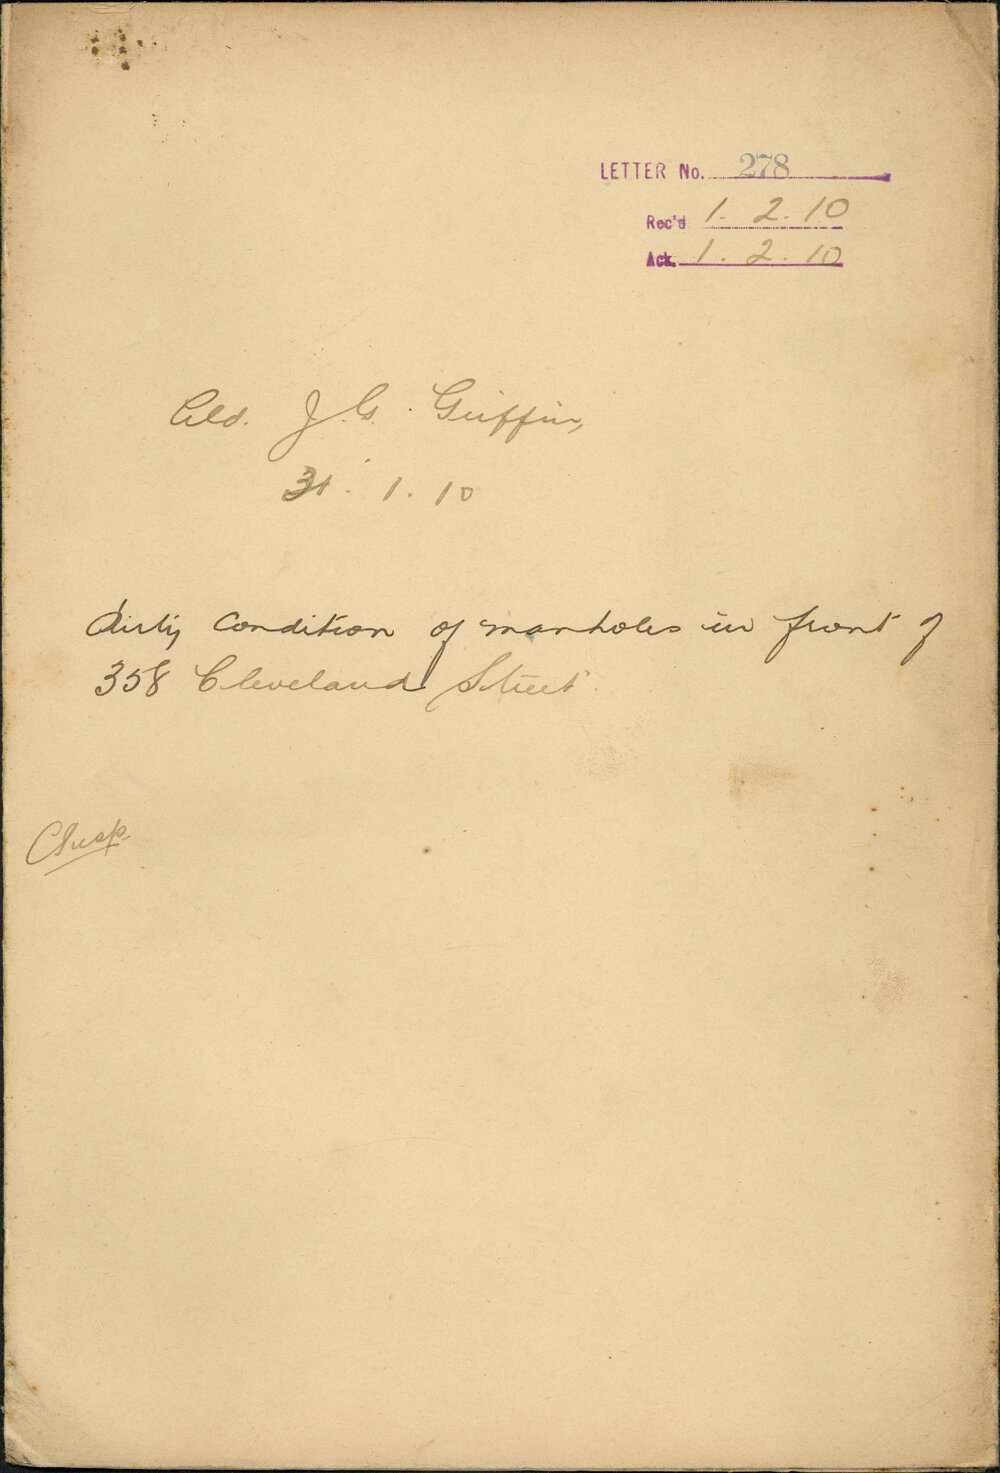 LETTER No. 278
Rec'd 1. 2. 10
Ack. 1. 2. 10
Ald. J. G. Griffin,
31. 1. 10
dirty condition of manholes in front of
358 Cleveland Street